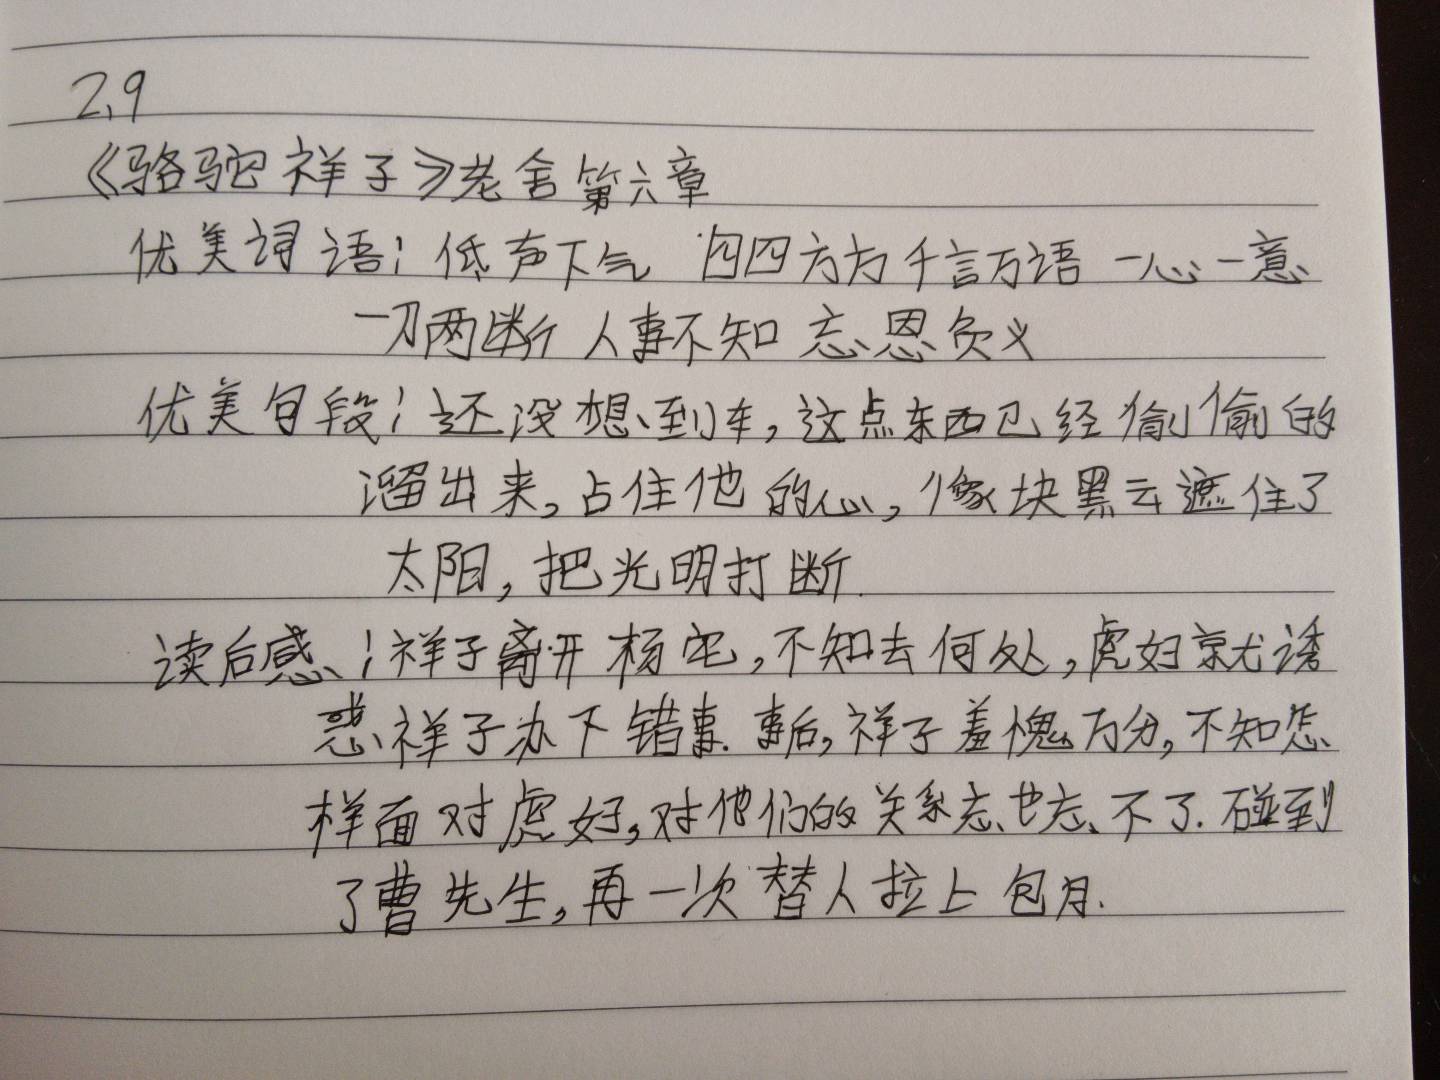 2.9
《骆驼祥子》老舍 第六章
优美词语: 低声下气 四四方方 千言万语 一心一意
一刀两断 人事不知 忘恩负义
优美句段: 还没想到车,这点东西已经偷偷的
溜出来,占住他的心,像块黑云遮住了
太阳,把光明打断.
读后感: 祥子离开杨宅,不知去何处,虎妞就诱
惑祥子办下错事. 事后,祥子羞愧万分,不知怎
样面对虎妞,对他们的关系忘也忘不了. 碰到
了曹先生,再一次替人拉上包月.